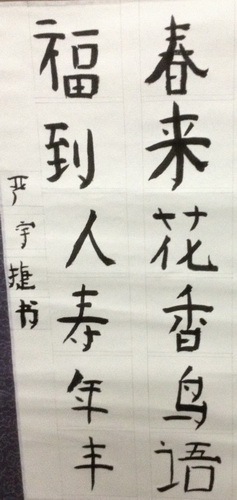 春来花香鸟语
福到人寿年丰
严宇捷书